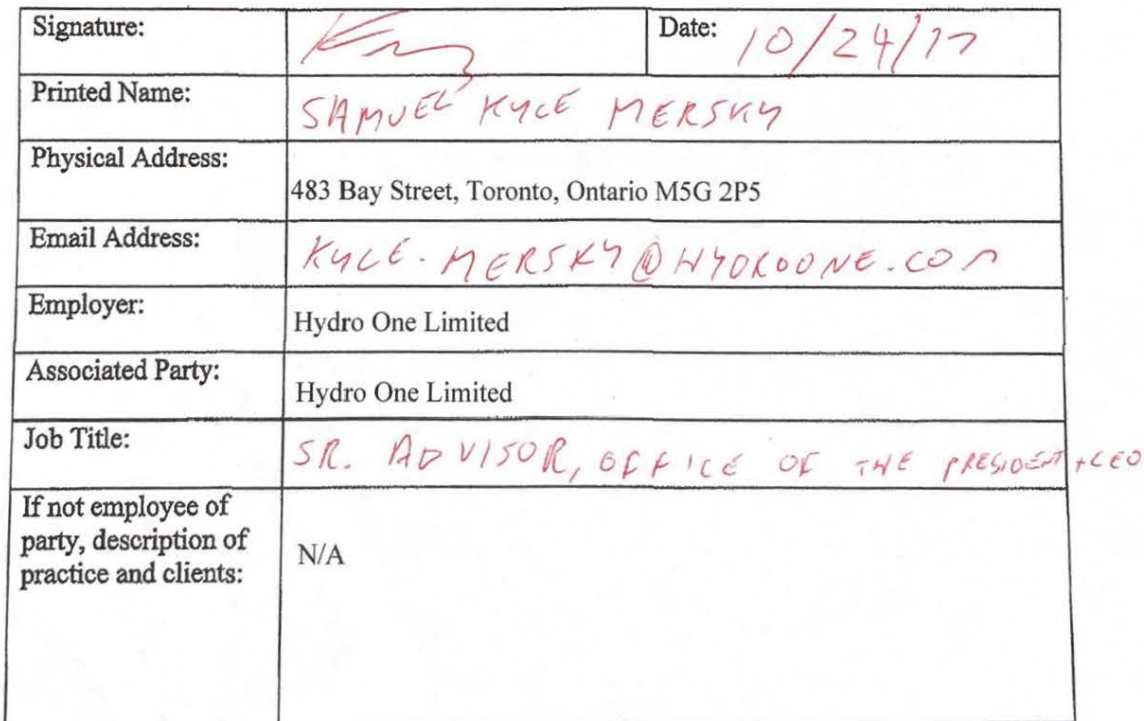 Signature: Date: 10/24/17
Printed Name: SAMUEL KYLE MERSKY
Physical Address: 483 Bay Street, Toronto, Ontario M5G 2P5
Email Address: KYLE.MERSKY@HYDROONE.COM
Employer: Hydro One Limited
Associated Party: Hydro One Limited
Job Title: SR. ADVISOR, OFFICE OF THE PRESIDENT + CEO
If not employee of
party, description of N/A
practice and clients: